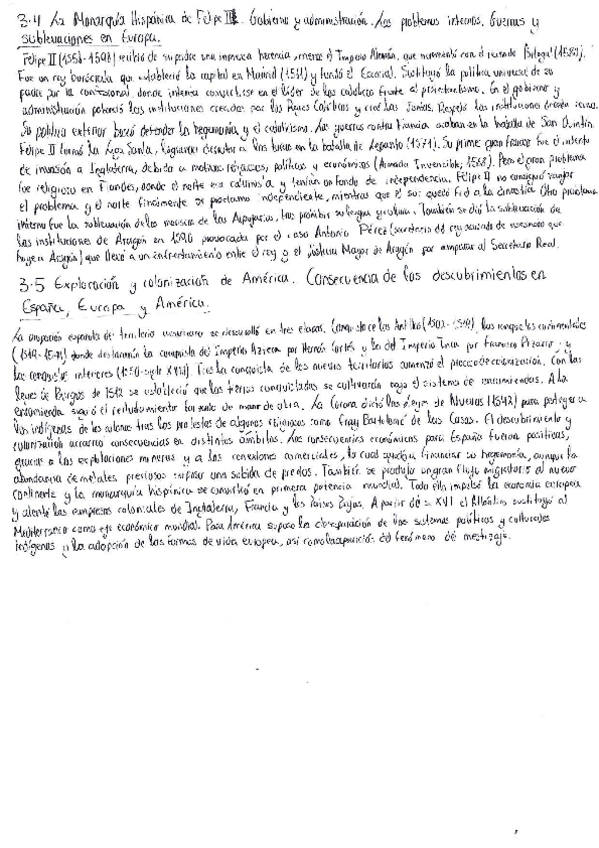 3.4 La Monarquía Hispánica de Felipe II. Gobierno y administración. Los problemas internos. Guerras y
sublevaciones en Europa.
Felipe II (1556-1598) recibió de su padre una inmensa herencia, menos el Imperio Alemán, que incrementó con el reino de Portugal
Fue un rey burócrata que estableció la capital en Madrid (1561) y fundó el Escorial. Sustituyó la política universal de su
padre por la confesional, donde intenta convertirse en el líder de los católicos frente al protestantismo. En el gobierno y
administración potenció las instituciones creadas por los Reyes Católicos y creó las Juntas. Respetó las instituciones
Su política exterior buscó defender la hegemonía y el catolicismo. Las guerras contra Francia acaban en la batalla de San Quintín.
Felipe II formó la Liga Santa, logrando derrotar a los turcos en la batalla de Lepanto (1571). Su primer gran fracaso fue el intento
de invasión a Inglaterra, debido a motivos religiosos, políticos y económicos (Armada Invencible, 1588). Pero el gran problema
fue religioso en Flandes, donde el norte era calvinista y tenían un fondo de independencia. Felipe II no consiguió
el problema y el norte finalmente se proclamó independiente, mientras que el sur quedó fiel a la dinastía. Otro problema
interno fue la sublevación de los moriscos de las Alpujarras, tras prohibir su lengua y cultura. También se dió la sublevación de
las instituciones de Aragón en 1590 provocada por el caso Antonio Pérez (secretario del rey acusado de asesinato que
huye a Aragón) que llevó a un enfrentamiento entre el rey y el Justicia Mayor de Aragón por amparar al Secretario Real.
3.5 Exploración y colonización de América. Consecuencia de los descubrimientos en
España, Europa y América.
La ocupación española del territorio americano se desarrolló en tres etapas. Conquista de las Antillas, las conquistas continentales
donde destacarán la conquista del Imperio Azteca por Hernán Cortés y la del Imperio Inca por Francisco Pizarro, y
las conquistas interiores (1550-siglo XVIII). Tras la conquista de los nuevos territorios comenzó el proceso de colonización. Con las
leyes de Burgos de 1512 se estableció que las tierras conquistadas se cultivarán bajo el sistema de encomiendas. A la
encomienda siguió el repartimiento forzado de mano de obra. La Corona dictó las leyes de Nuevas (1542) para proteger a
los indígenas de los colonos tras las protestas de algunos religiosos como Fray Bartolomé de las Casas. El descubrimiento y
colonización acarreó consecuencias en distintos ámbitos. Las consecuencias económicas para España fueron positivas,
gracias a las explotaciones mineras y a las conexiones comerciales, lo cual ayudó a financiar su hegemonía, aunque la
abundancia de metales preciosos supuso una subida de precios. También se produjo un gran flujo migratorio al nuevo
continente y la monarquía hispánica se convirtió en primera potencia mundial. Todo ello impulsó la economía europea
y alentó las empresas coloniales de Inglaterra, Francia y los Países Bajos. A partir del s. XVI el Atlántico sustituyó al
Mediterráneo como eje económico mundial. Para América supuso la desaparición de los sistemas políticos y culturales
indígenas y la adopción de las formas de vida europea, así como la aparición del fenómeno de mestizaje.